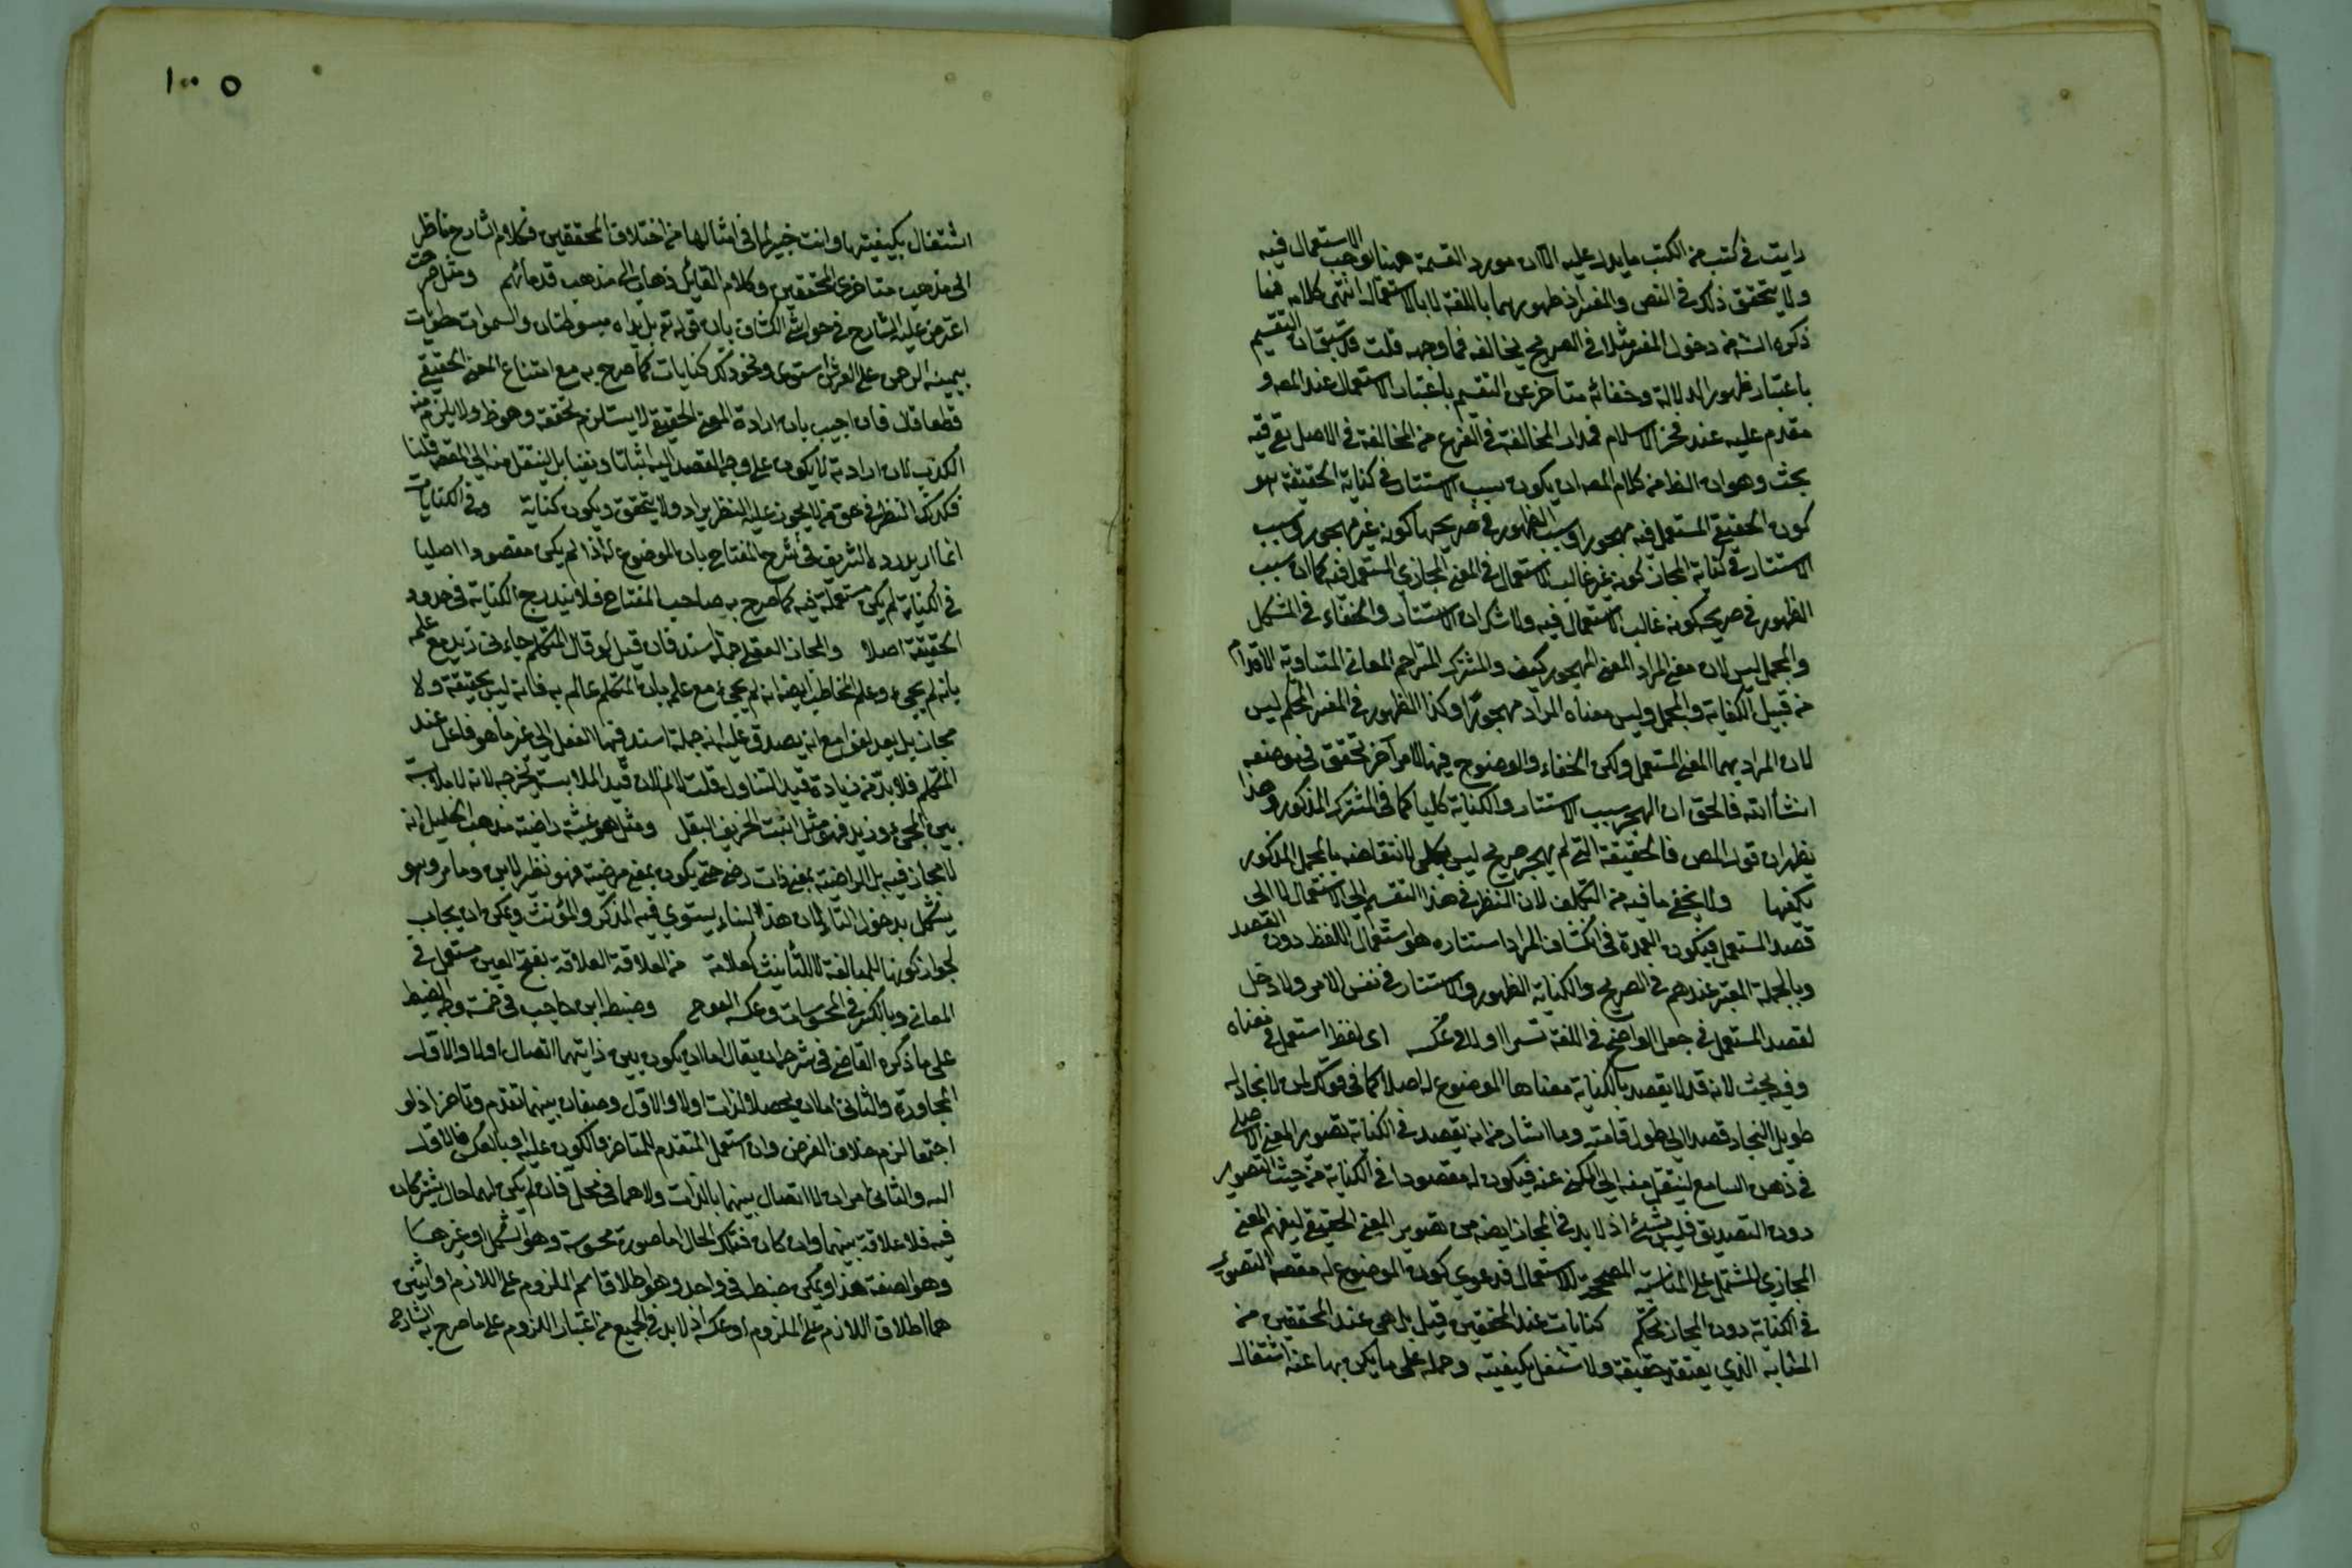 رايت فى كتب من الكتب ما يدل عليه الا ان مورد القسمة ههنا لوجب الاستعمال فيه
ولا يتحقق ذلك فى النص والمفسر اذ ظهورهما باللغة لا بالاستعمال انتهى كلامه فما
ذكره الشه من دخول المفسر مثلا فى الصريح يخالفه فما وجهه قلت قد سبق ان التقسيم
باعتبار ظهور الدلالة وخفائه متاخر عن التقسيم باعتبار الاستعمال عند المصه و
مقدم عليه عند فخر الاسلام فمدار المخالفة فى الفرع من المخالفة فى الاصل بقى فيه
بحث وهو ان الظ من كلام المصه ان يكون سبب الاستتار فى كناية الحقيقة هو
كون الحقيقى المستعمل فيه مهجورا وسبب الظهور فى صريحها كونه غير مهجور وسبب
الاستتار فى كناية المجاز كونه غير غالب الاستعمال فى المعنى المجازى المستعمل فيه كما ان سبب
الظهور فى صريحه كونه غالب الاستعمال فيه ولا شك ان الاستتار والخفاء فى المشكل
والمجمل ليس لان معنى المراد المعنى المهجور كيف والمشترك المتراحم المعانى المتساوية الاقدام
من قبيل الكناية والمجمل وليس معناه المراد مهجورا وكذا الظهور فى المفسر المحكم ليس
لان المراد بهما المعنى المستعمل ولكن الخفاء والوضوح فيها لامر آخر تحقق فى موضعه
انشأ الله فالحق ان الهجر سبب الاستتار والكناية كليا كما فى المشترك المذكور وهذا
يظهر ان قول المص فالحقيقة التى لم يهجر صريح ليس بكلى لانتقاضه بالمجمل المذكور
يكفيها ولا يخفى ما فيه من التكلف لان النظر فى هذا التقسيم الى الاستعمال لا الى
قصد المستعمل فيكون العمدة فى انكشاف المراد استتاره هو استعمال اللفظ دون القصد
وبالجملة المعتبر عندهم فى الصريح والكناية الظهور والاستتار فى نفس الامر ولا دخل
لقصد المستعمل فى جعل الواضح فى اللغة تسترا اولا وعكسه اى لفظ استعمل فى معناه
وفيه بحث لانه قد لا يقصد بالكناية معناها الموضوع له اصلا كما فى قولك لمن لا نجاد له
طويل النجاد قصدا الى طول قامته وما اشار من انه يقصد فى الكناية تصوير المعنى الاصلى
فى ذهن السامع لينتقل منه الى المكنى عنه فيكون له مقصودا فى الكناية من حيث التصوير
دون التصديق فليس بشئ اذ لا بد فى المجاز ايضه من تصوير المعنى الحقيقى ليفهم المعنى
المجازى المشتمل على المناسبة المصححة للاستعمال فدعوى كون الموضوع له مقصه التصوير
فى الكناية دون المجاز تحكم كنايات عند المحققين قيل بل هى عند المحققين من
المتشابه الذى يعتقد حقيقة ولا نشتغل بكيفيته وحمله على ما يكنى بها عنه اشتغال
١٠٠ ٥
اشتغال بكيفيتها وانت خبير لما فى امثالها من اختلاف المحققين فكلام الشارح ناظر
الى مذهب متاخرى المحققين وكلام القائل ذهاب الى مذهب قدمائهم ومثل صرحت
اعترض عليه الشارح فى حواشى الكشاف بان قوله تع بل يداه مبسوطتان والسموات مطويات
بيمينه الرحمن على العرش استوى ونحو ذلك كنايات كما صرح به مع امتناع المعنى الحقيقى
قطعا قلت فان اجيب بان ارادة المعنى الحقيقى لا يستلزم تحققه وهو ظ ولا يلزم منه
الكذب لان ارادته لا يكون على وجه القصد اليه اثباتا ونفيا بل لينتقل منه الى المقصه قلنا
فكذلك النظر فى حق من لا يجوز عليه النظر يراد ولا يتحقق ويكون كناية وفى الكنايات
انما اريد رد الشريف فى شرح المفتاح بان الموضوع له اذا لم يكن مقصودا اصليا
فى الكناية لم يكن مستعملة فيه كما صرح به صاحب المفتاح فلا يندرج الكناية فى حدود
الحقيقة اصلا والمجاز العقلى جملة اسند فان قيل لو قال المتكلم جاءنى زيد مع علمه
بانه لم يجئ وعلم المخاطب ايضه انه لم يجئ مع علمه بان المتكلم عالم به فانه ليس بحقيقة ولا
مجاز بل يعد لغوا مع انه يصدق عليه انه جملة اسند فيها الفعل الى غير ما هو فاعل عند
المتكلم فلا بد من زيادة قيد التناول قلت لا نم لان قيد الملابسة يخرجه لانه لا ملابسة
بين المجئ وزيد فهو مثل انبت الخريف البقل ومثل هو عيشة راضية مذهب الخليل انه
لا مجاز فيه بل الراضية بمعنى ذات رضى حتى يكون بمعنى مرضية فهو نظير لابن وتامر وهو
يشكل بدخول التاء لان هذا البناء يستوى فيه المذكر والمؤنث ويمكن ان يجاب
لجواز كونها للمبالغة لا للتأنيث كعلامة من العلاقة العلاقة بفتح العين مستعمل فى
المعانى وبالكسر فى المحسوسات وعكسه العوج وضبطه ابن حاجب فى خمسة وجه الضبط
على ما ذكره القاضى فى شرحه ان يقال اما ان يكون بين ذاتيهما اتصال اولا والاول
المجاورة والثانى اما ان يحصلا لذات اولا والاول وصفان بينهما تقدم وتاخر اذ لو
اجتمعا لزم خلاف الفرض وان استعمل المتقدم للمتاخر فالكون عليه او بالعكس فالاول
اليه والثانى امران لا اتصال بينهما بالذات ولا هما فى محل فان لم يكن لهما حال يشتركان
فيه فلا علاقة بينهما وان كان فتلك الحال اما صورة محسوسة وهو الشكل او غيرها
وهو الصفة هذا ويمكن ضبطه فى واحد وهو اطلاق اسم الملزوم على اللازم او اثنين
هما اطلاق اللازم على الملزوم او عكسه اذ لا بد فى الجميع من اعتبار اللزوم على ما صرح به الشارح